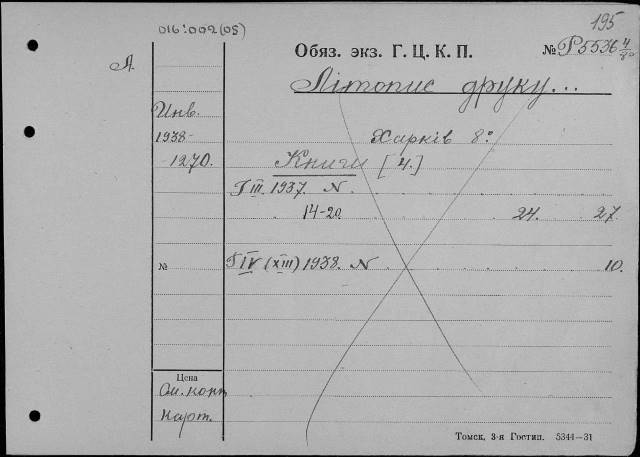 016:002(05)
195
Обяз. экз. Г. Ц. К. П. № Р5536 4/80
А.
Літопис друку...
Инв.
1938- Харків 8º
-1270. Книги [4.]
Г III. 1937. N
14-20. 24. 27.
№ Г IV (XIII) 1938. N 10.
Цена
См. конт
карт.
Томск, 3-я Гостип. 5344—31